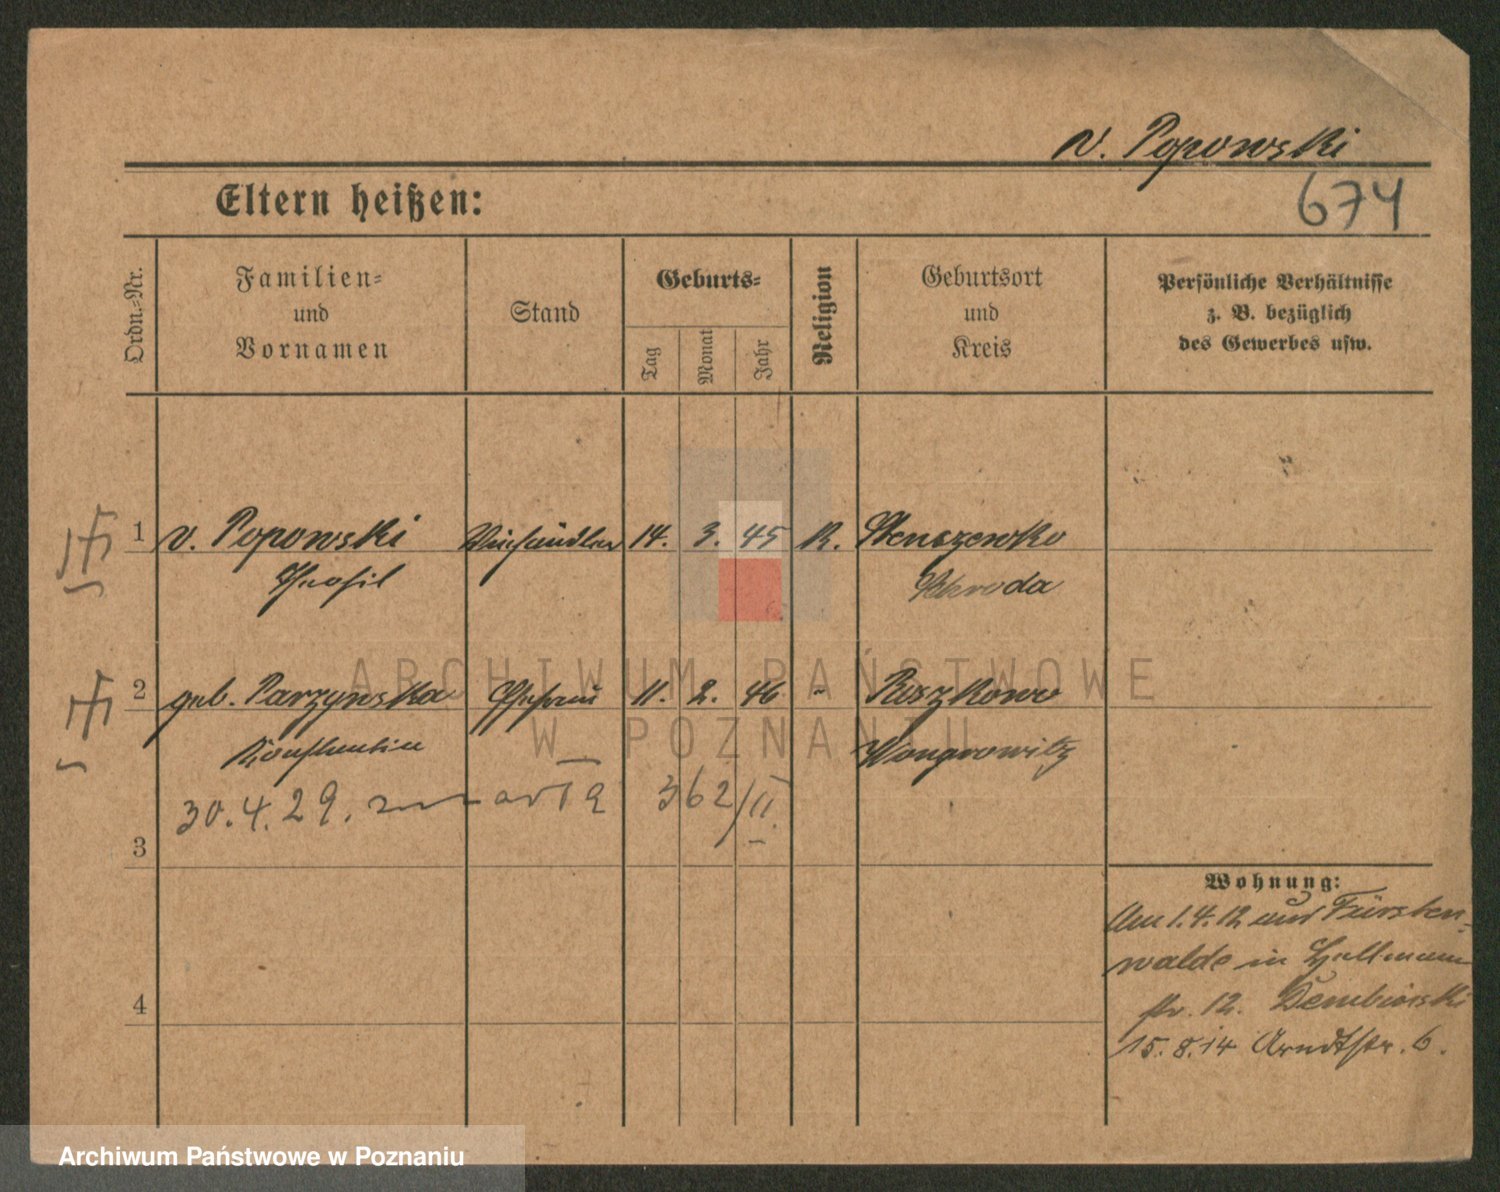 v. Popowski
Eltern heißen:
674
Ordn.-Nr.
Familien-
und
Vornamen
Stand
Geburts-
Tag
Monat
Jahr
Religion
Geburtsort
und
Kreis
Persönliche Verhältnisse
z. B. bezüglich
des Gewerbes usw.
1 v. Popowski Viehhändler 14. 3. 45 K.
Theofil Schroda
ARCHIWUM PAŃSTWOWE
W POZNANIU
2 geb. Parzynska Ehefrau 11. 2. 46 " Ruszkowo
Konstantia Wongrowitz
30.4.29. 362/II
3
Wohnung:
Am 1.4.12 aus Fürsten-
walde in
str. 12. Dembinski
4
15.8.14 Arndtstr. 6.
Archiwum Państwowe w Poznaniu